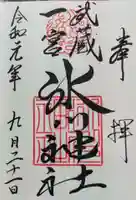 奉拝
武蔵
一宮
氷川神社
令和元年
九月二十一日